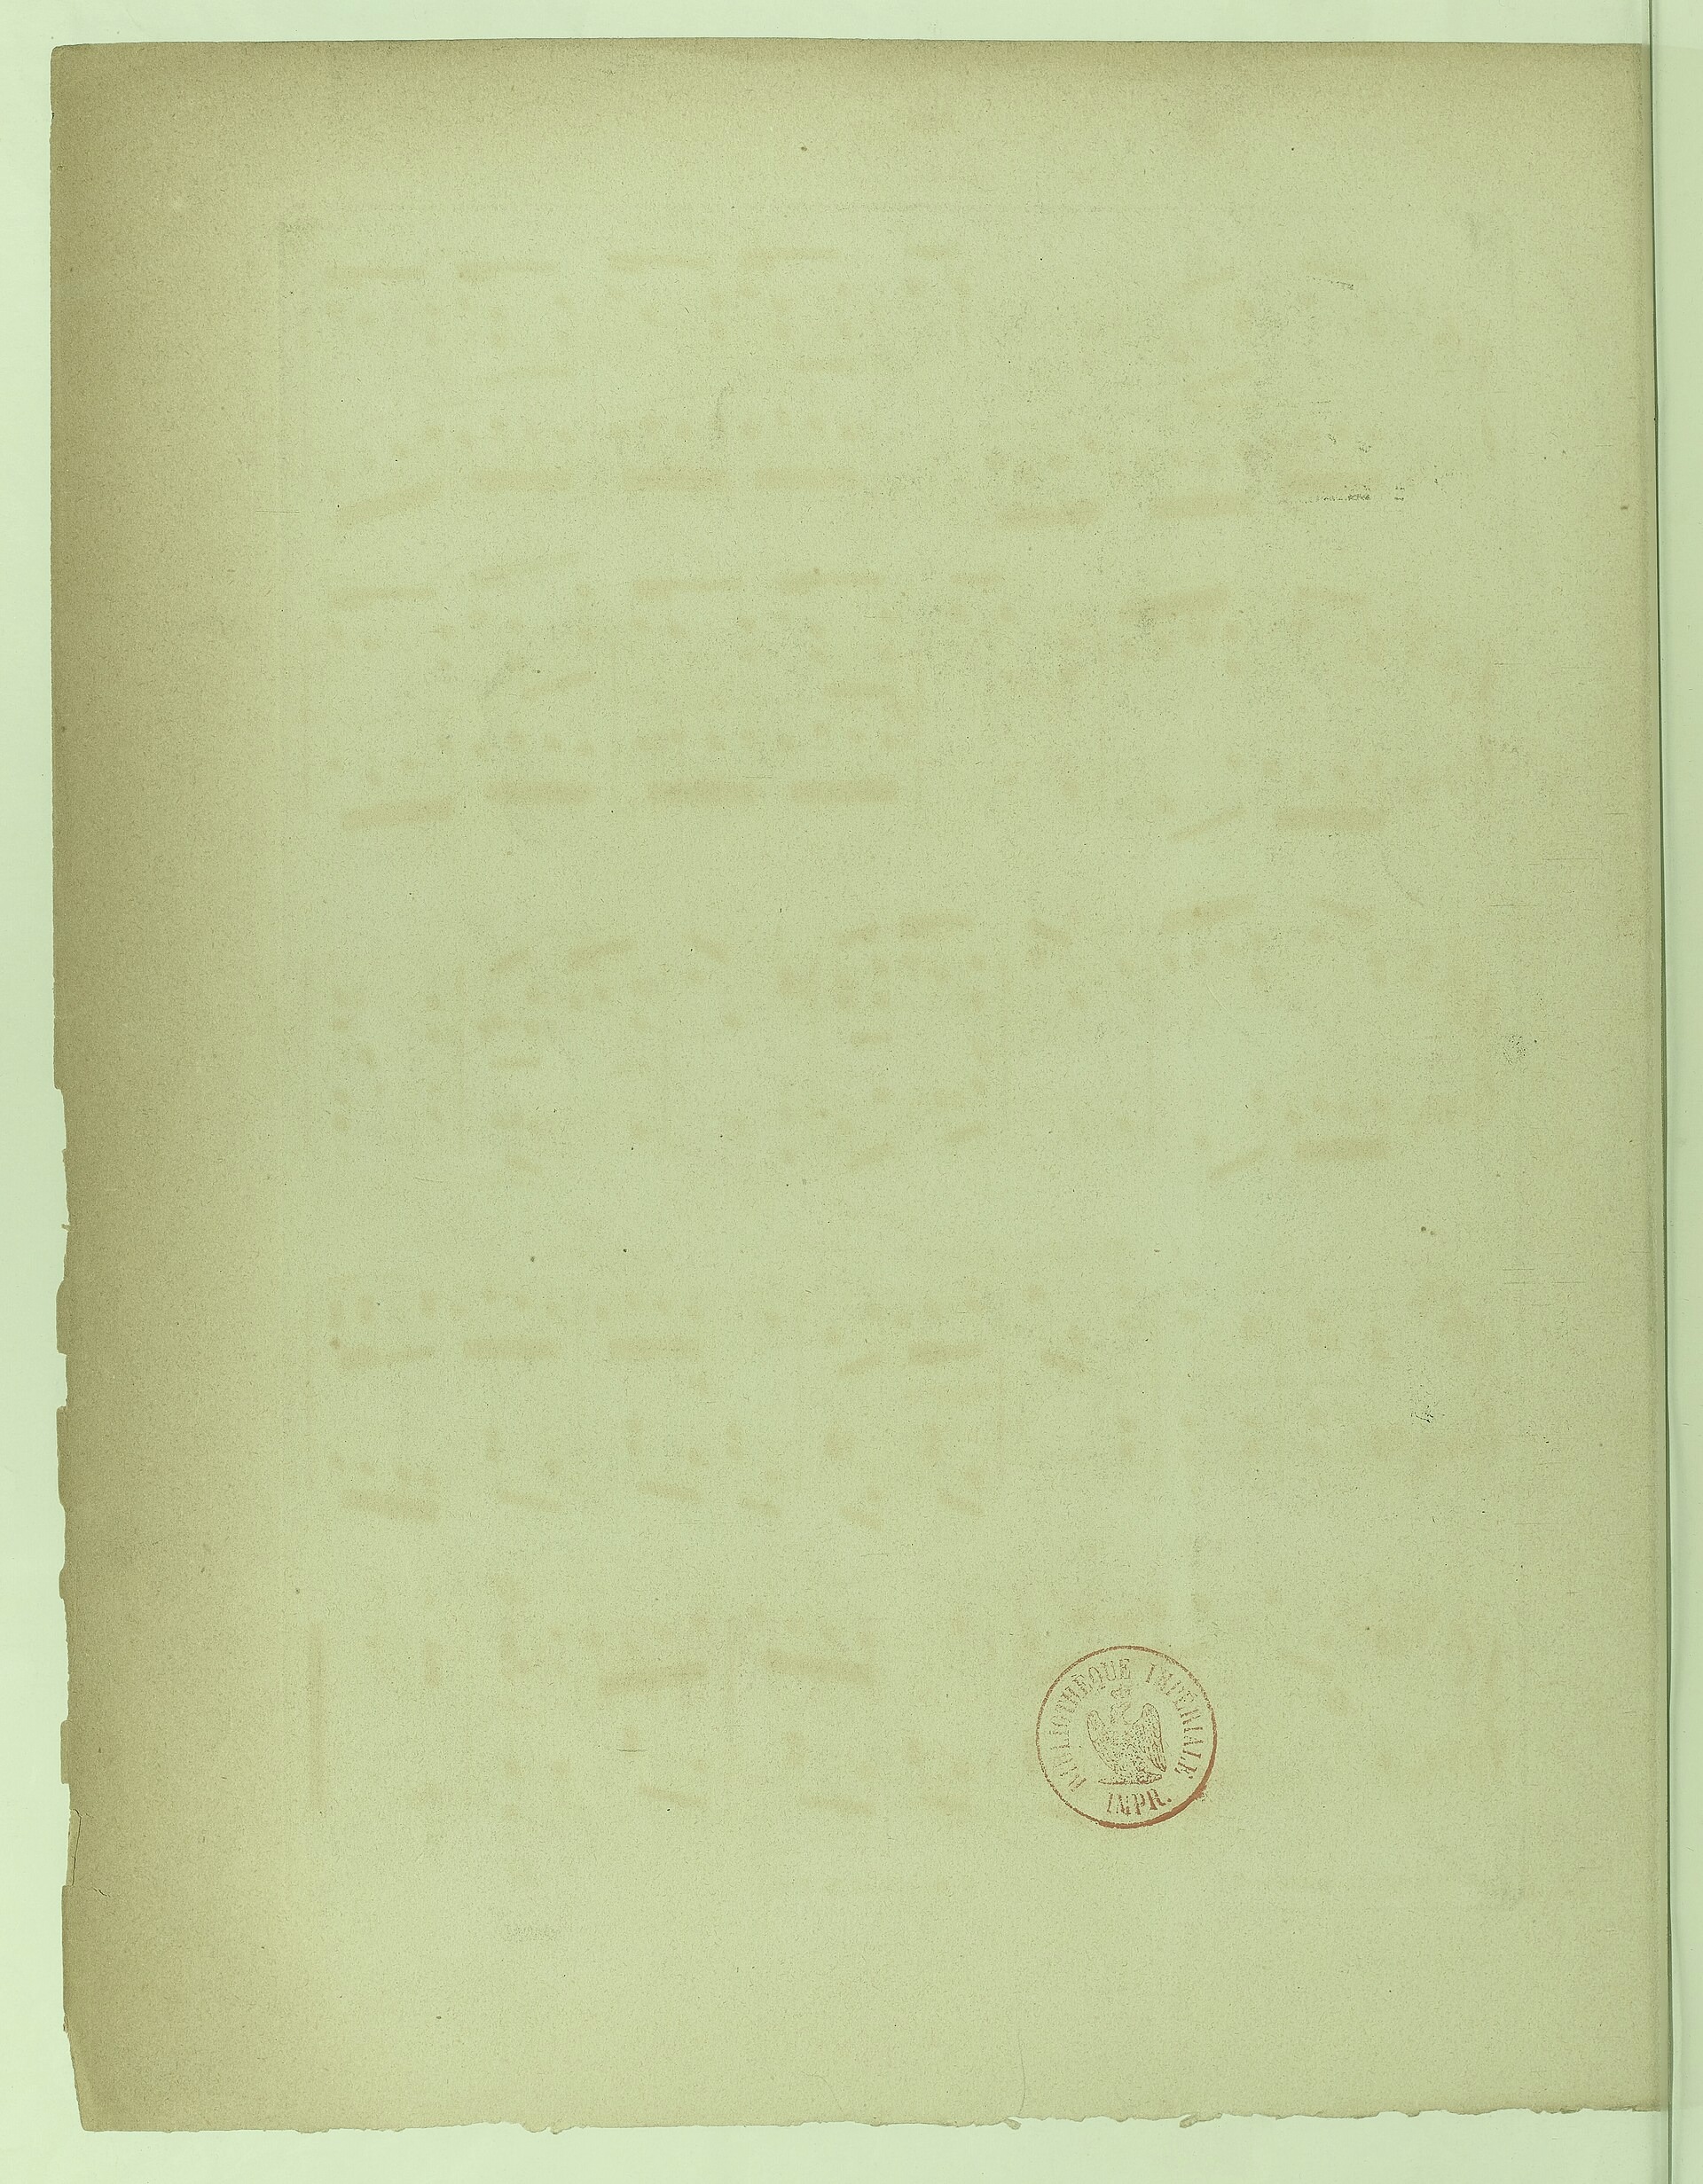 BIBLIOTHÈQUE IMPÉRIALE
IMPR.